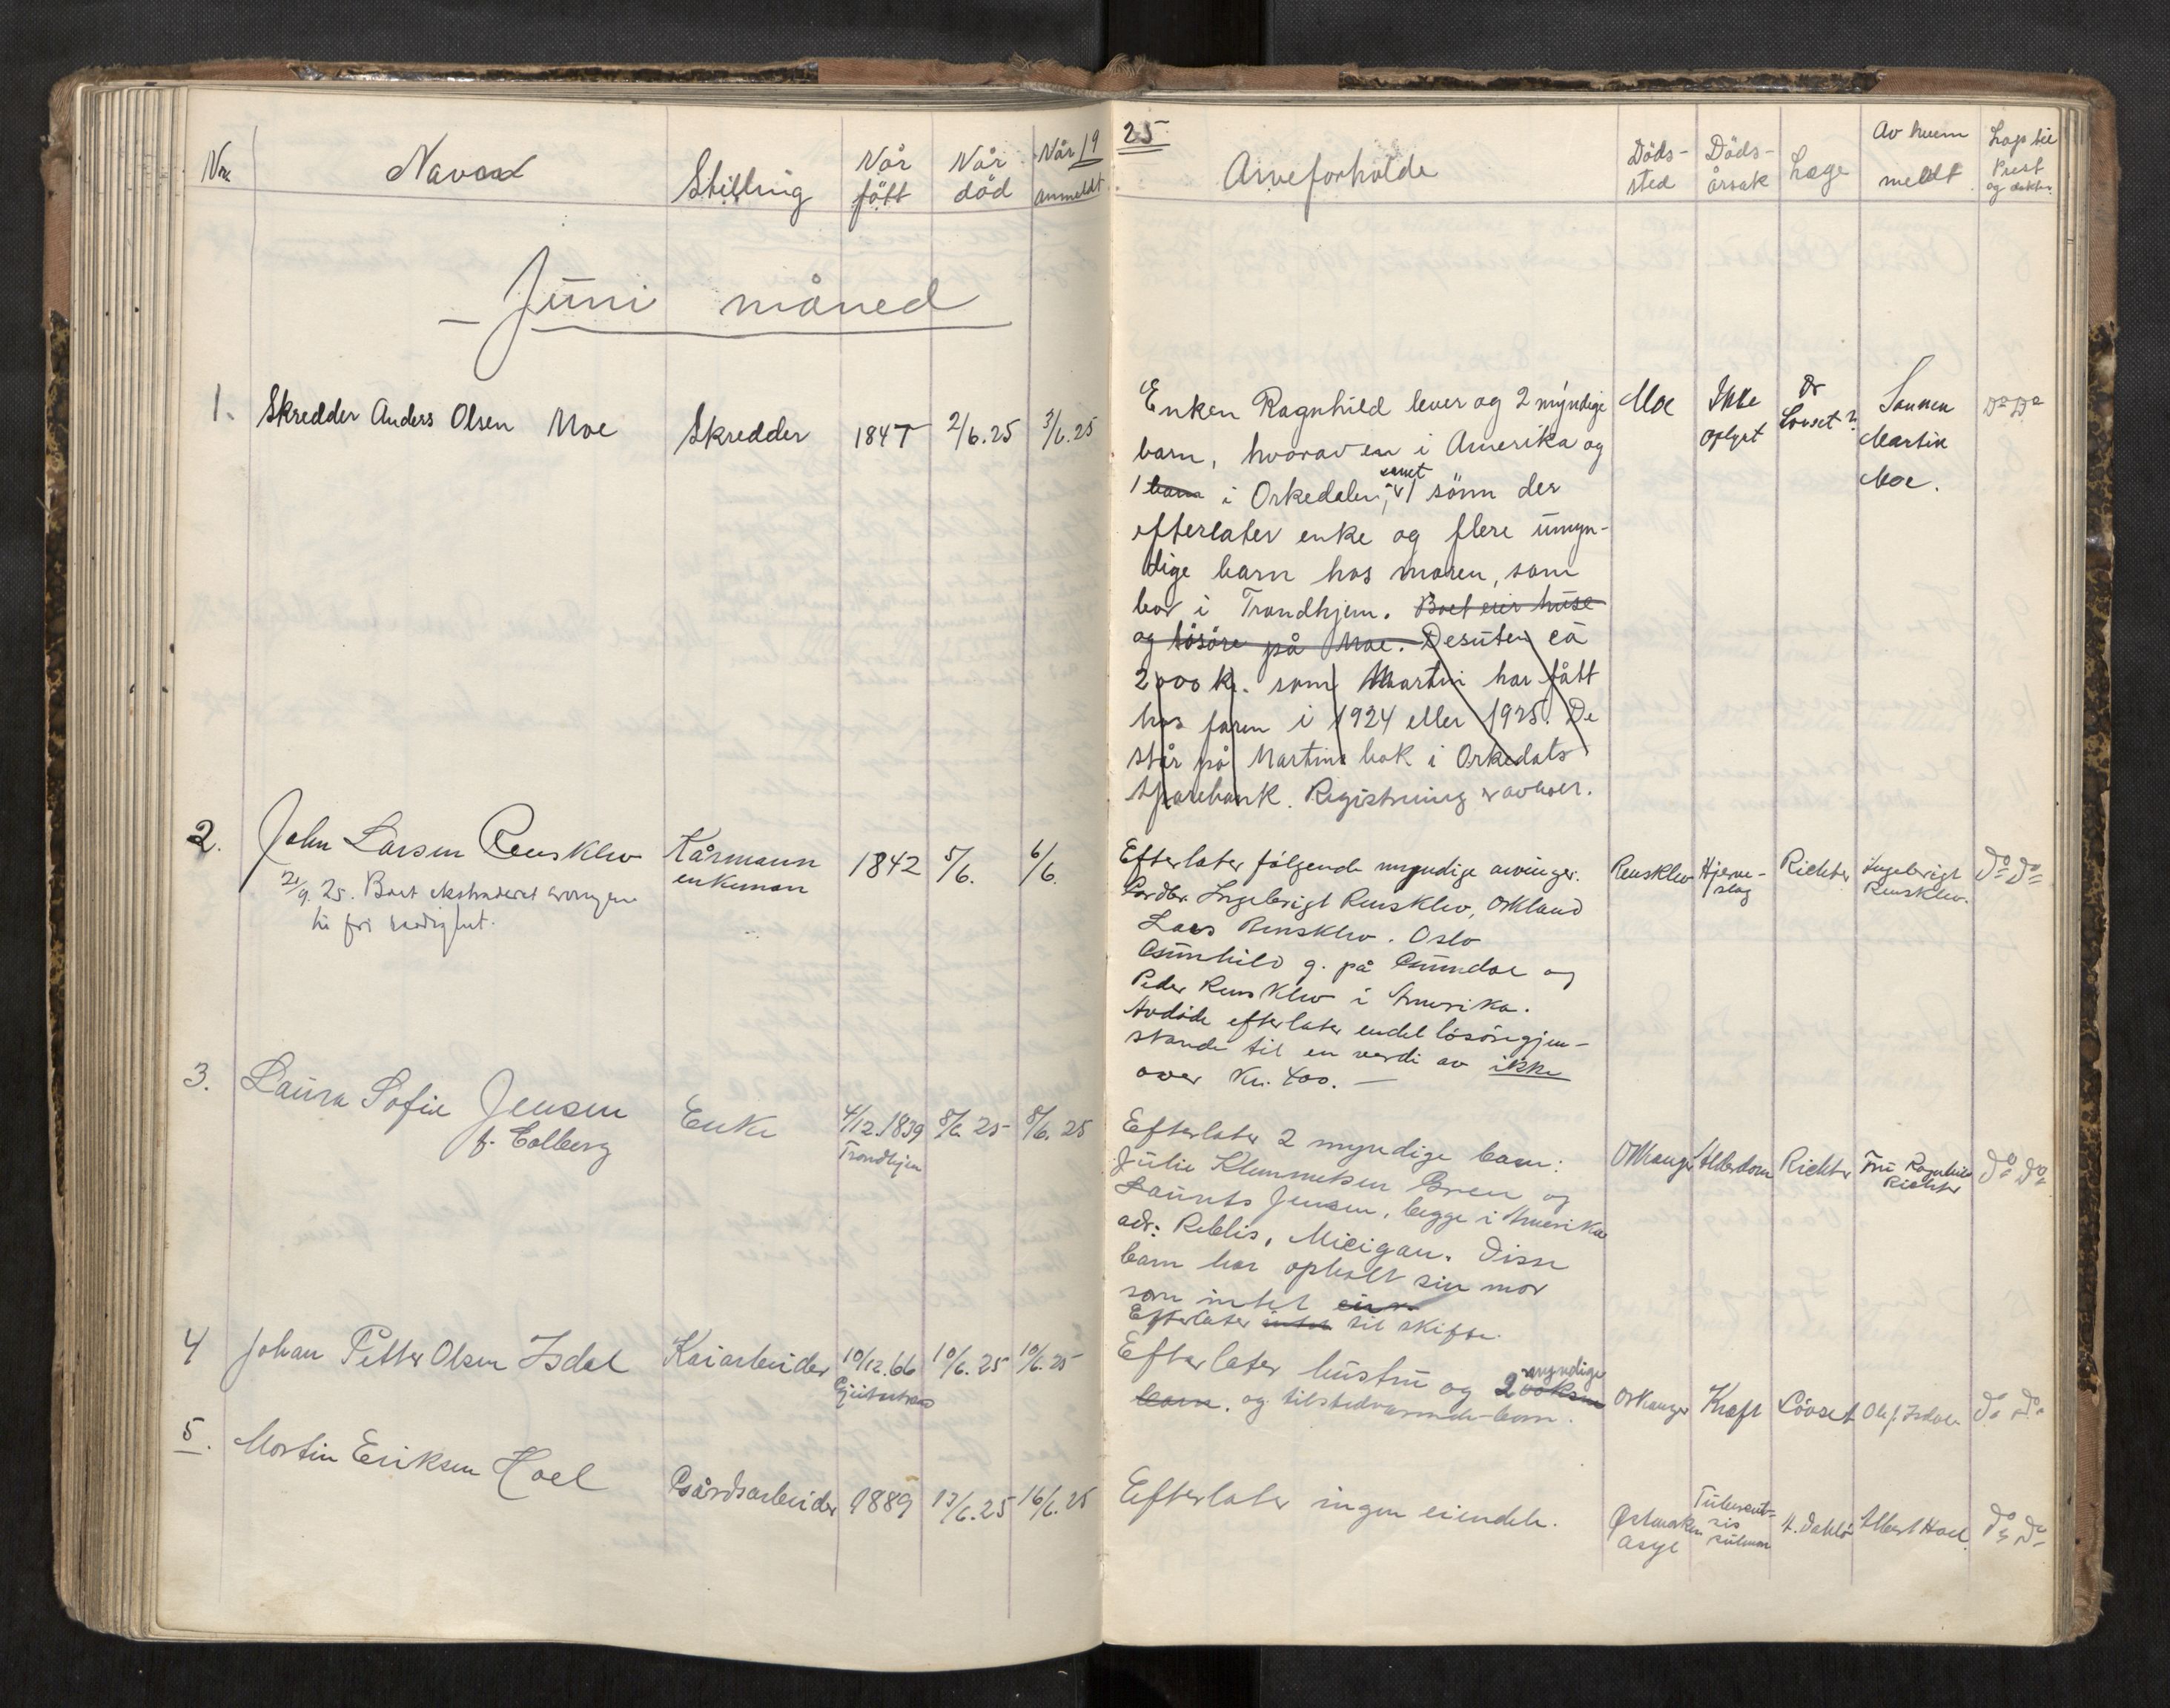 Nr.
Navn
Stilling
Når født
Når død
Når anmeldt
19
25
Arveforholde
Døds-sted
Døds-årsak
Læge
Av hvem meldt
Lap til Prest og doktor.
Juni måned
1. Skredder Anders Olsen Moe
Skredder
1847
2/6.25
3/6.25
Enken Ragnhild lever og 2 myndige
barn, hvorav en i Amerika og
1 barn i Orkedalen, samt 1 sönn der
efterlater enke og flere umyn-
dige barn hos moren, som
bor i Trondhjem. Boet eier huse
og lösöre på Moe. Desuten ca
2000 kr. som Martin har fått
hos faren i 1924 eller 1925. De
står på Martins bok i Orkedals
Sparebank. Registrering er avholt.
Moe
Ikke oplyst
Dr Lövset ?
Sønnen
Martin
Moe.
Do Do
2. John Larsen Rensklev
21/9.25. Boet ekstradert arvingene
til fri rådighet.
Kårmann
enkeman
1842
5/6.
6/6.
Efterlater følgende myndige arvinger.
Gardbr. Ingebrigt Rensklev, Orkland
Lars Rensklev. Oslo
Gunhild g. på Grundal og
Peder Rensklev i Amerika.
Avdöde efterlater endel lösöregjen-
stande til en verdi av ikke
over Kr. 400. —
Rensklev
Hjerne-
slag
Richter
Ingebrigt
Rensklev.
Do Do
3. Laura Sofie Jensen
f. Colberg
Enke
4/12.1839
Trondhjem
8/6.25
8/6.25
Efterlater 2 myndige barn:
Julie Klemmetsen Green og
Laurits Jensen, begge i Amerika
adr: Reblis, Micigan. Disse
barn har opholt sin mor
som intet eier
Efterlater intet til skifte.
Orkanger
Alderdom
Richter
Fru Ragnhild
Richter
do do
4 Johan Petter Olsen Isdal
Kaiarbeider
10/12.66
10/6.25
10/6.25
Efterlater hustru og 2 voksne myndige
barn. og tilstedværende barn.
Orkanger
Kreft
Lövset
Ole J. Isdal
do do
5. Martin Eriksen Hoel
Gårdsarbeider
1889
13/6.25
16/6.25
Efterlater ingen eiendele.
Östmarken
asyl
Tuberculo-
sis
pulmon
H. Dahlö
Albert Hoel.
do do